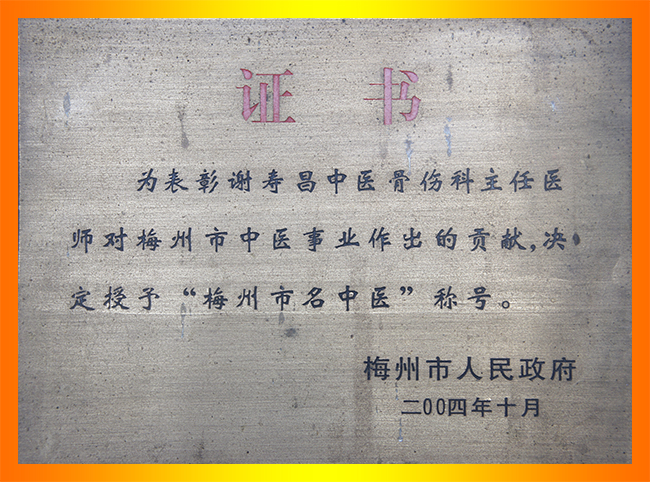 证书
为表彰谢寿昌中医骨伤科主任医
师对梅州市中医事业作出的贡献,决
定授予“梅州市名中医”称号。
梅州市人民政府
二00四年十月